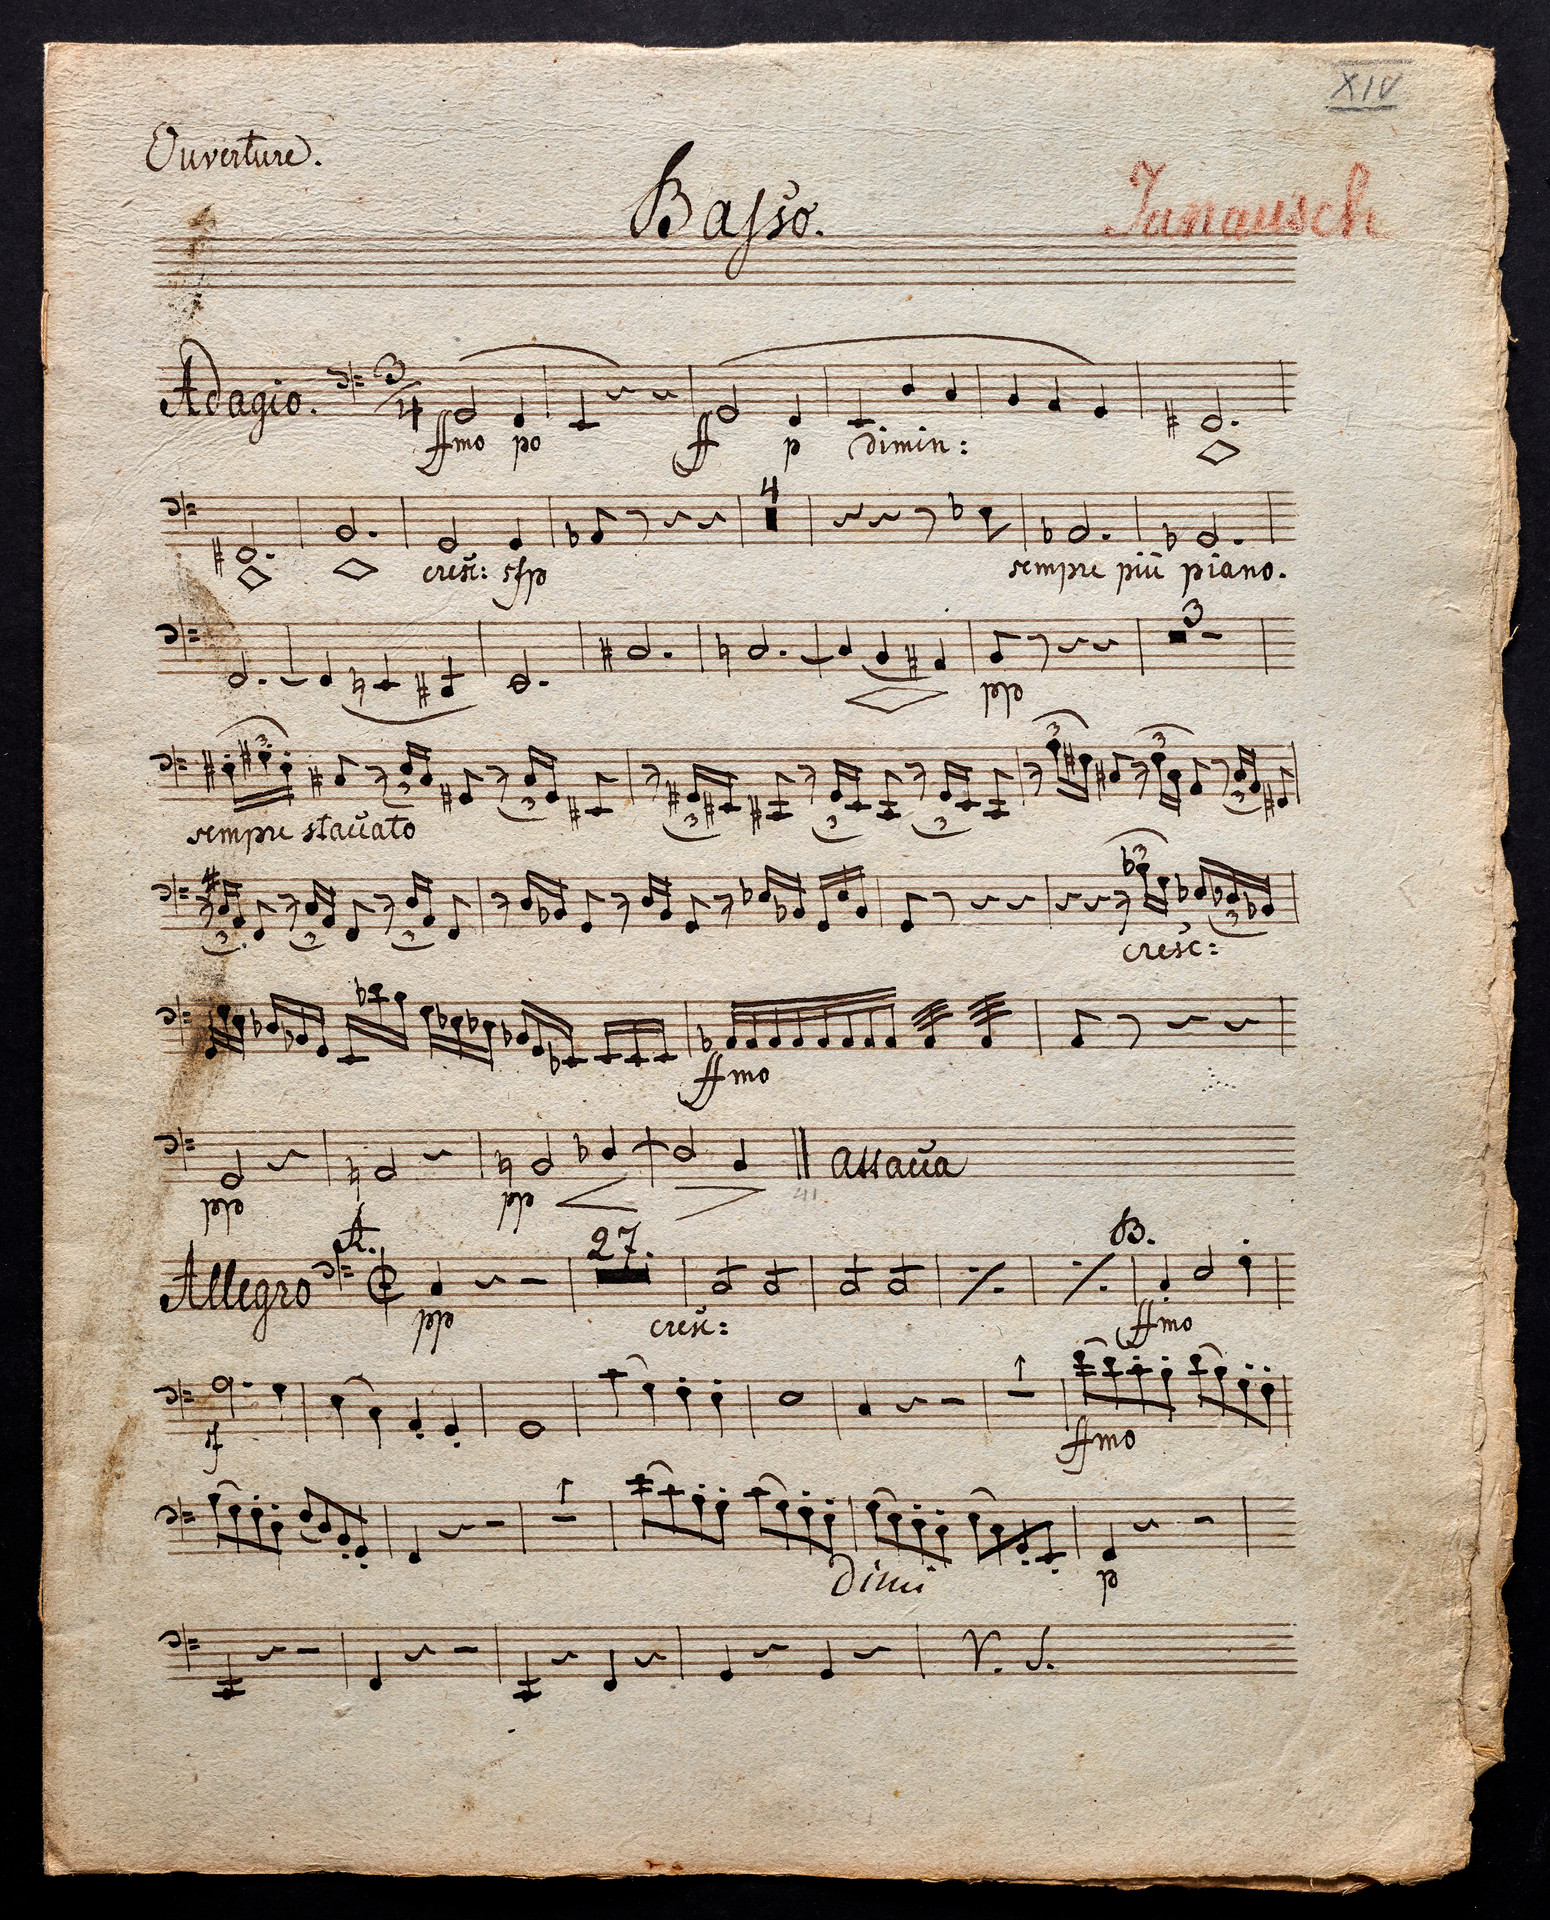 XIV
Ouverture.
Basso.
Janausch
Adagio. 3/4
ffmo po ff p dimin:
4
cresc: sfp sempre più piano.
3
pp
3 3 3 3 3 3 3 3 3
sempre staccato
3 3 3 3 3
cresc:
ffmo
pp pp attacca
41
A. 27. B.
Allegro
pp cresc: ffmo
1
sf ffmo
1
dimi p
V. S.